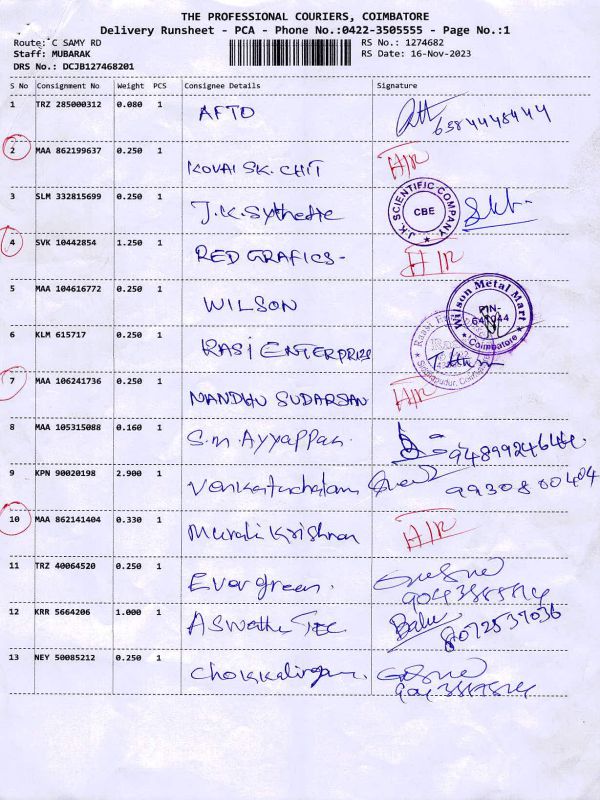 THE PROFESSIONAL COURIERS, COIMBATORE
Delivery Runsheet - PCA - Phone No.:0422-3505555 - Page No.:1
Route: C SAMY RD RS No.: 1274682
Staff: MUBARAK RS Date: 16-Nov-2023
DRS No.: DCJB127468201
S No Consignment No Weight PCS Consignee Details Signature
1 TRZ 285000312 0.080 1 AFTO
2 MAA 862199637 0.250 1 KOVAI SK. CHIT H/R
3 SLM 332815699 0.250 1 J.K. Sythette J.K. SCIENTIFIC COMPANY CBE
4 SVK 10442854 1.250 1 RED GRAFICS- H/R
5 MAA 104616772 0.250 1 WILSON Wilson Metal Mart Coimbatore
6 KLM 615717 0.250 1 RASI ENTERPRIZE
7 MAA 106241736 0.250 1 NANDHU SUDARSAN H/R
8 MAA 105315088 0.160 1 S.M. Ayyappan.
9 KPN 90020198 2.900 1 Venkatachalam 9930800404
10 MAA 862141404 0.330 1 Murali Krishnan H/R
11 TRZ 40064520 0.250 1 Evergreen.
12 KRR 5664206 1.000 1 Aswathi TEC Babu 8072537036
13 NEY 50085212 0.250 1 Chokkalingam.